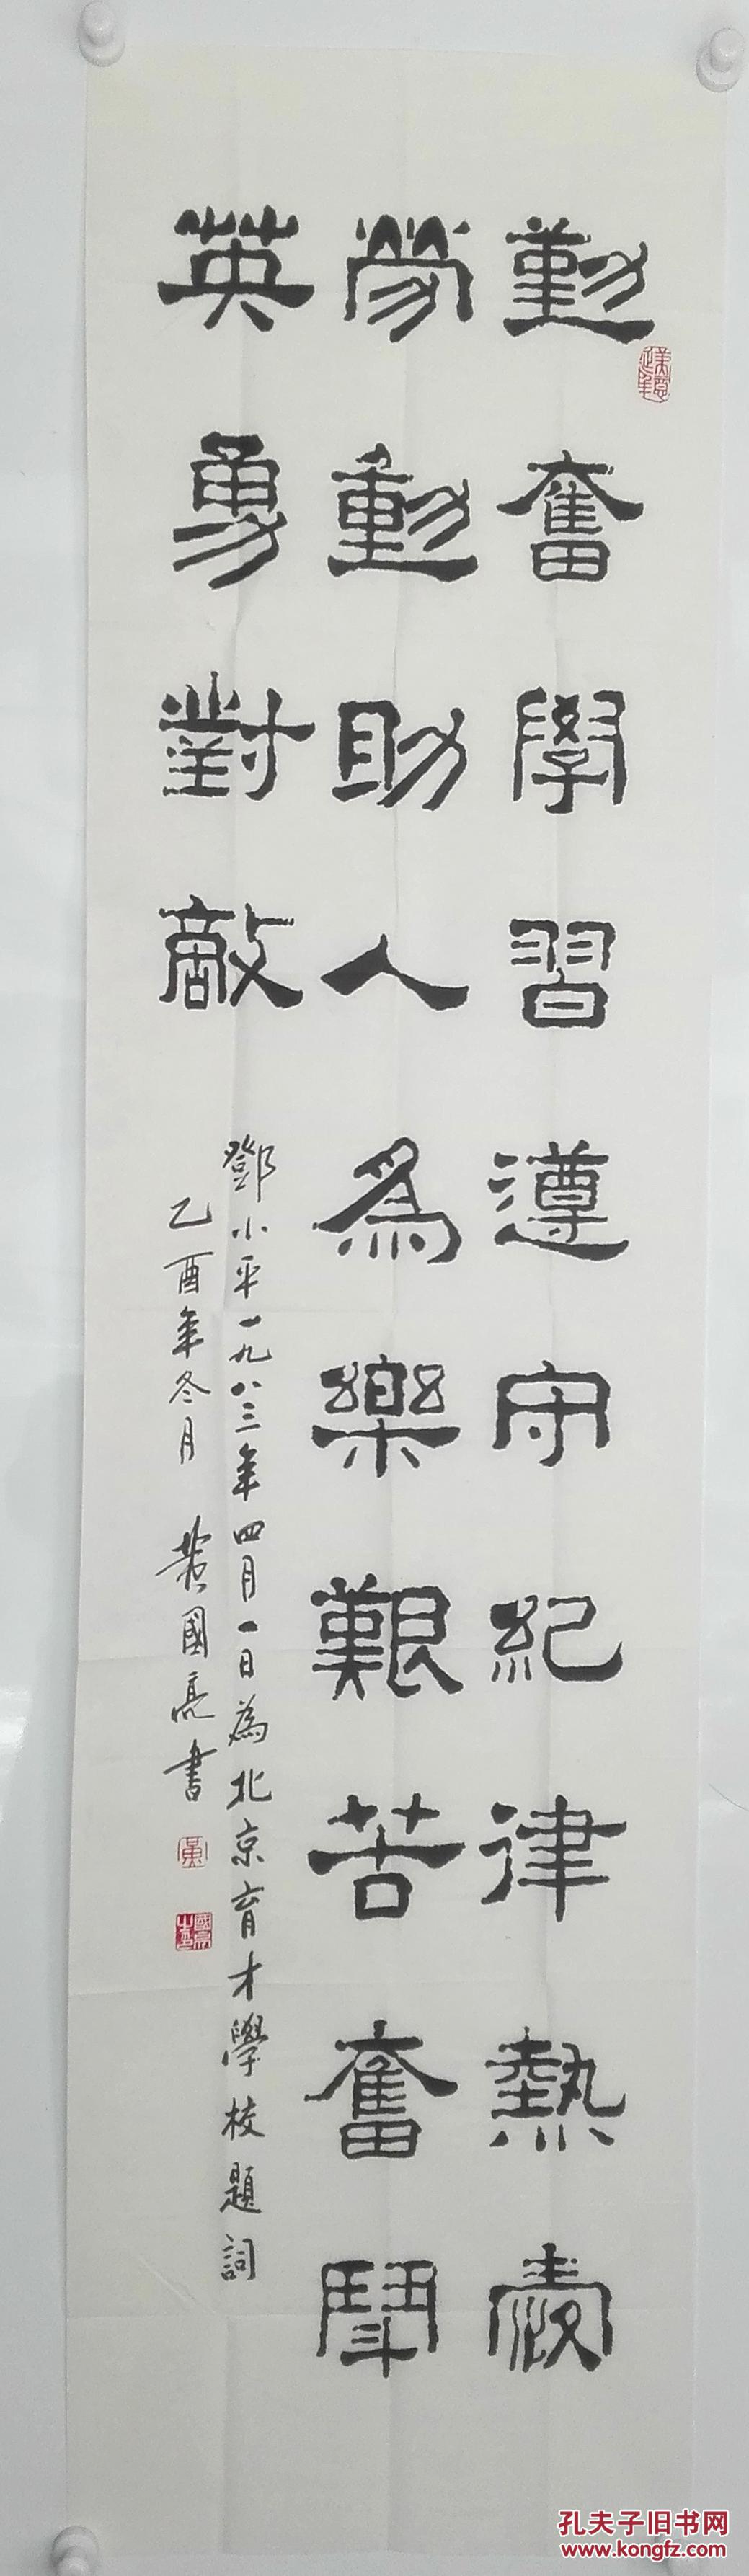 勤奮學習遵守紀律熱愛
勞動助人為樂艱苦奮鬥
英勇對敵
鄧小平一九八三年四月一日為北京育才學校題詞
乙酉年冬月 黄國亮書
黄
國亮之印
孔夫子旧书网
www.kongfz.com